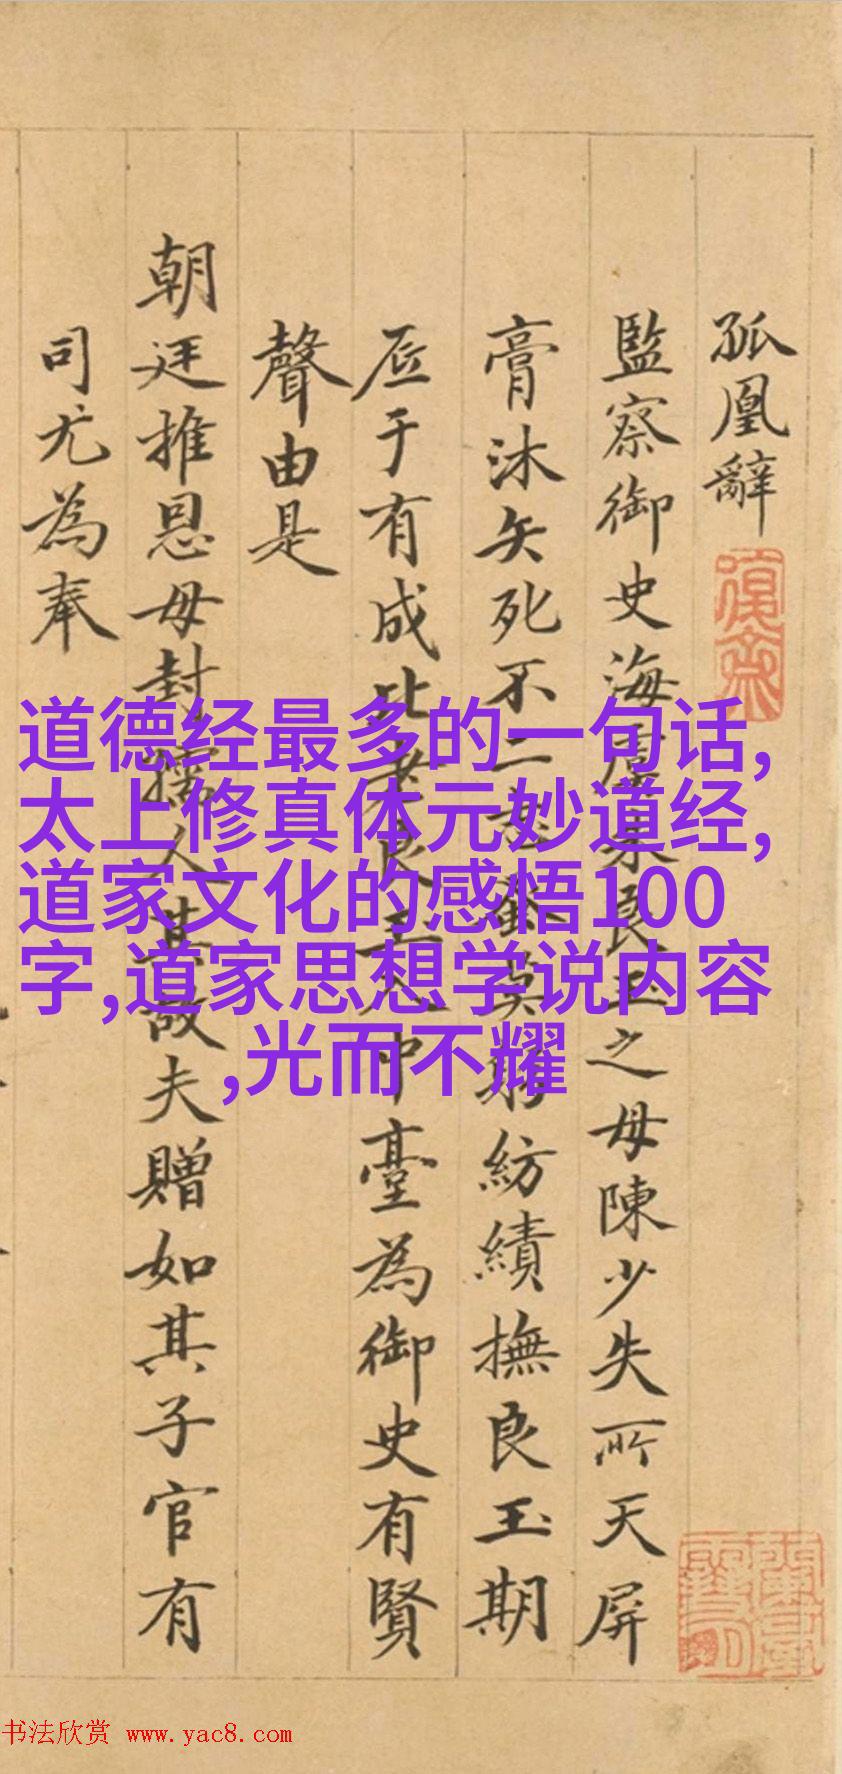 孤凰辭
監察御史海虞
良玉之母陳少失所天屏
膏沐矢死不二
紡績撫良玉期
底于有成
中臺為御史有賢
聲由是
朝廷推恩母封孺人其故夫贈如其子官有
司尤為奉
道德经最多的一句话,
太上修真体元妙道经,
道家文化的感悟100
字,道家思想学说内容
,光而不耀
书法欣赏 www.yac8.com